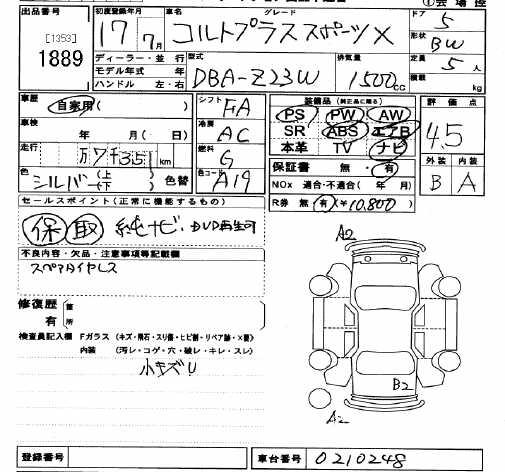 ①会場控
出品番号
[1353]
1889
初度登録年月
17 7月
車名 グレード
コルトプラス スポーツX
ドア 5
形状 BW
ディーラー・並行
モデル年式 年
ハンドル 左・右
型式
DBA-Z23W
排気量
1500cc
定員 5人
積載 kg
車歴
自家用( )
シフト FA
装備品 (純正品に限る)
PS PW AW
SR ABS エアB
本革 TV ナビ
評価点
4.5
車検
年 月( 日)
冷房 AC
走行
万7千351km
燃料 G
外装 内装
B A
保証書 無・有
色 シルバー (上 下) 色替
色コード A19
NOx 適合・不適合( 年 月)
R券 無・有(¥10,800)
セールスポイント(正常に機能するもの)
保 取 純ナビ・DVD再生可
不良内容・欠品・注意事項等記載欄
スペアタイヤレス
A2
修復歴
有 箇所
検査員記入欄 Fガラス (キズ・飛石・スリ傷・ヒビ割・リペア跡・X要)
内装 (汚レ・コゲ・穴・破レ・キレ・スレ)
小キズU
B2
A2
登録番号
車台番号 0210248